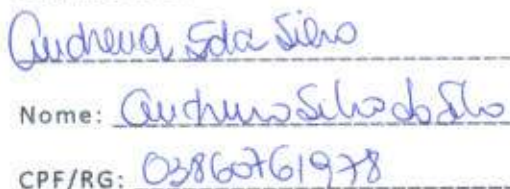 Andreia S da Silva
Nome: Silva da Silva
CPF/RG: 03860761978